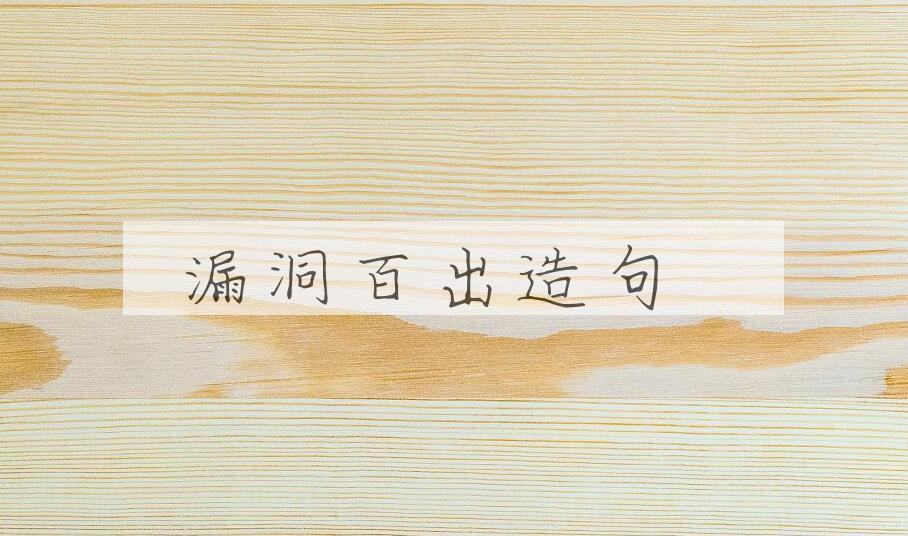 漏洞百出造句